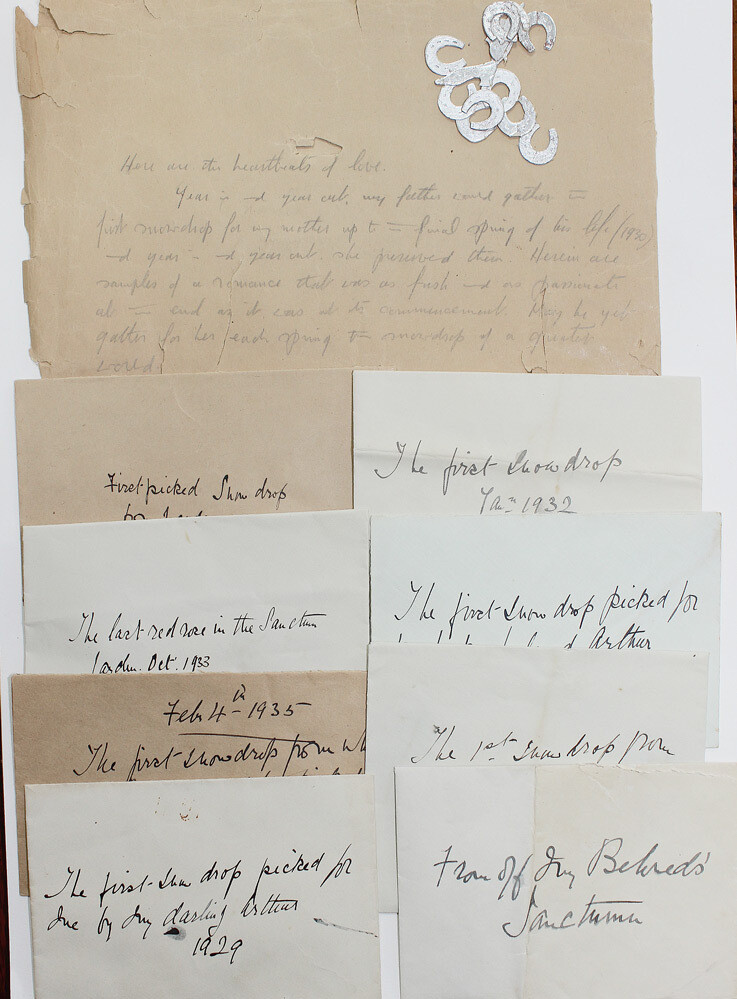 Here are the heartbeats of love.
Year in and year out, my father would gather the
first snowdrop for my mother up to the final spring of his life (1930)
and year in and year out she preserved them. Herein are
samples of a romance that was as fresh and as passionate
at the end as it was at its commencement. May he yet
gather for her each spring the snowdrop of a greater
world.
First picked Snow drop
for
The first snowdrop
Jan.ry 1932
The last red rose in the Sanctum
Garden. Oct. 1933
The first snow drop picked for
Arthur
Feb 4th 1935
The first snowdrop from
The 1st snowdrop from
The first snow drop picked for
me by my darling Arthur
1929
From off my Beloved's
Sanctum